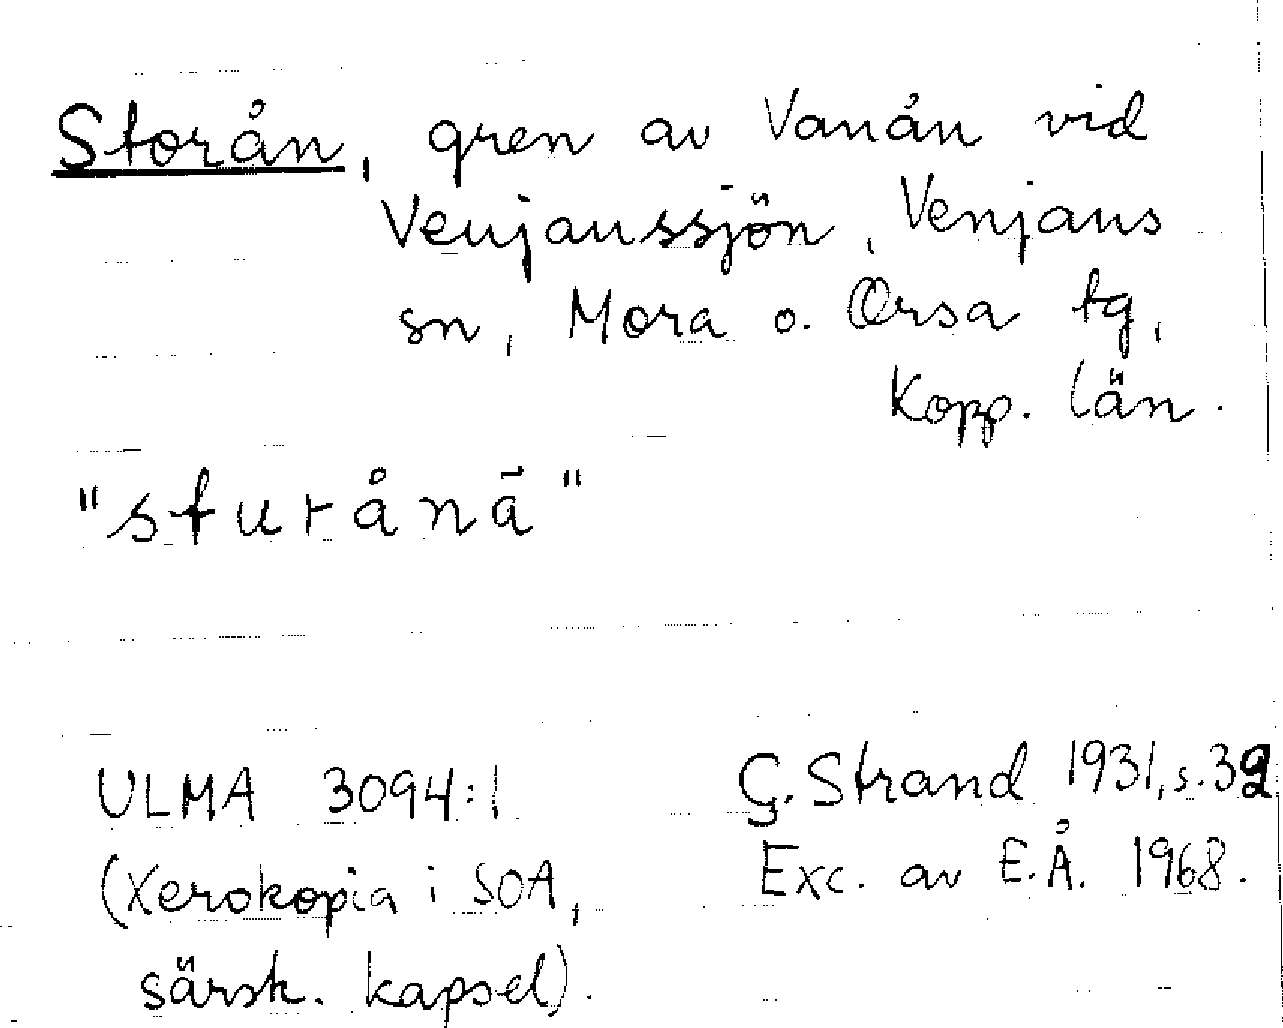 Storån, gren av Vanån vid
Venjanssjön, Venjans
sn, Mora o. Orsa tg,
Kopp. län.
"sturånā"
ULMA 3094:1
(Xerokopia i SOA,
särsk. kapsel).
G. Strand 1931, s. 39
Exc. av E.Å. 1968.